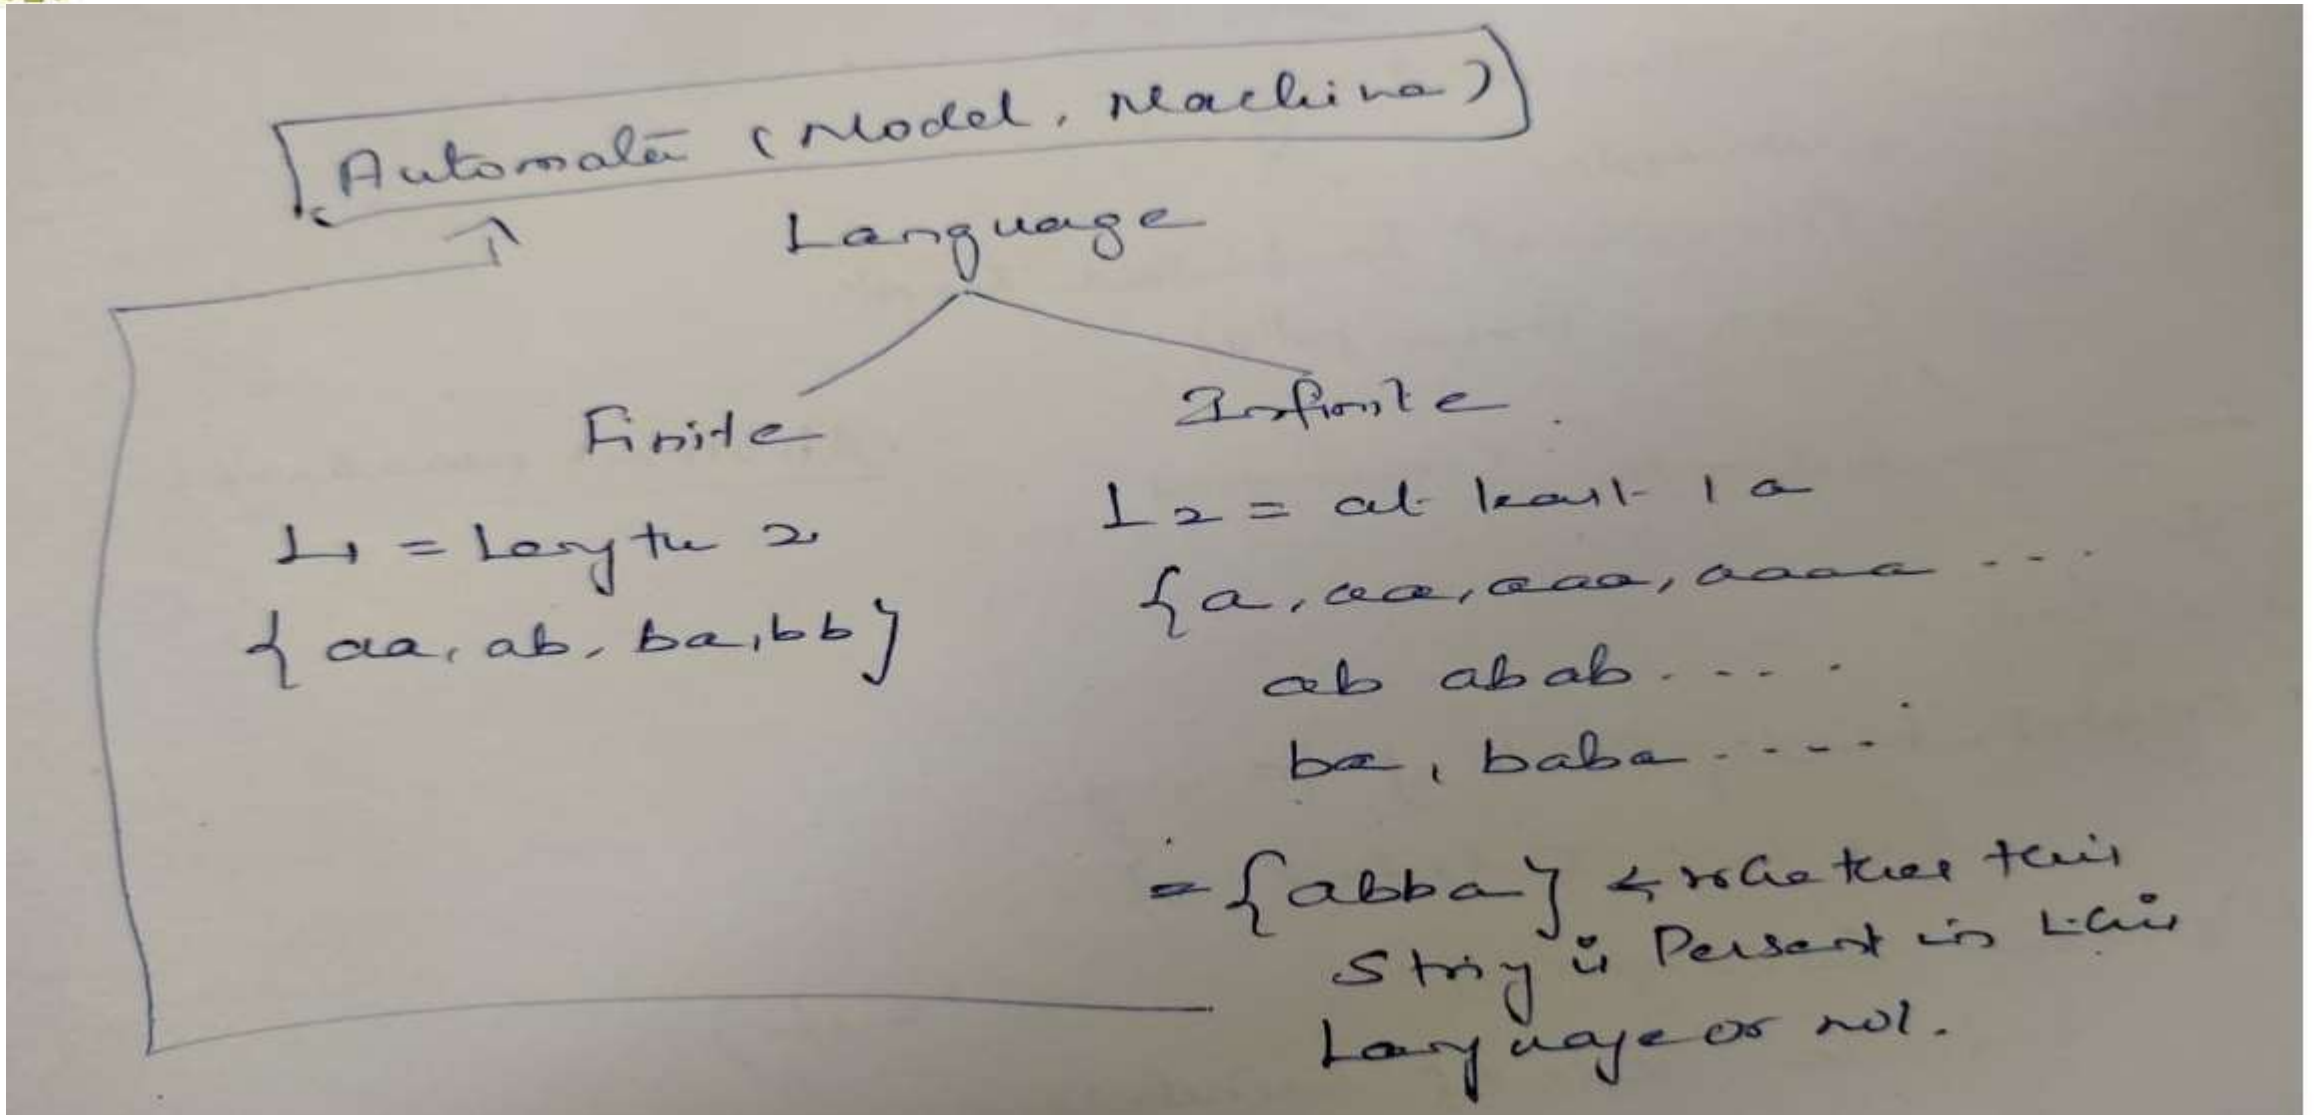 Automata (Model, Machine)
Language
Finite
Infinite
L1 = Length 2
{aa, ab, ba, bb}
L2 = at least 1 a
{a, aa, aaa, aaaa ...
ab abab ....
ba, baba ....
= {abba} ← whether this
String is Persent in this
Language or not.